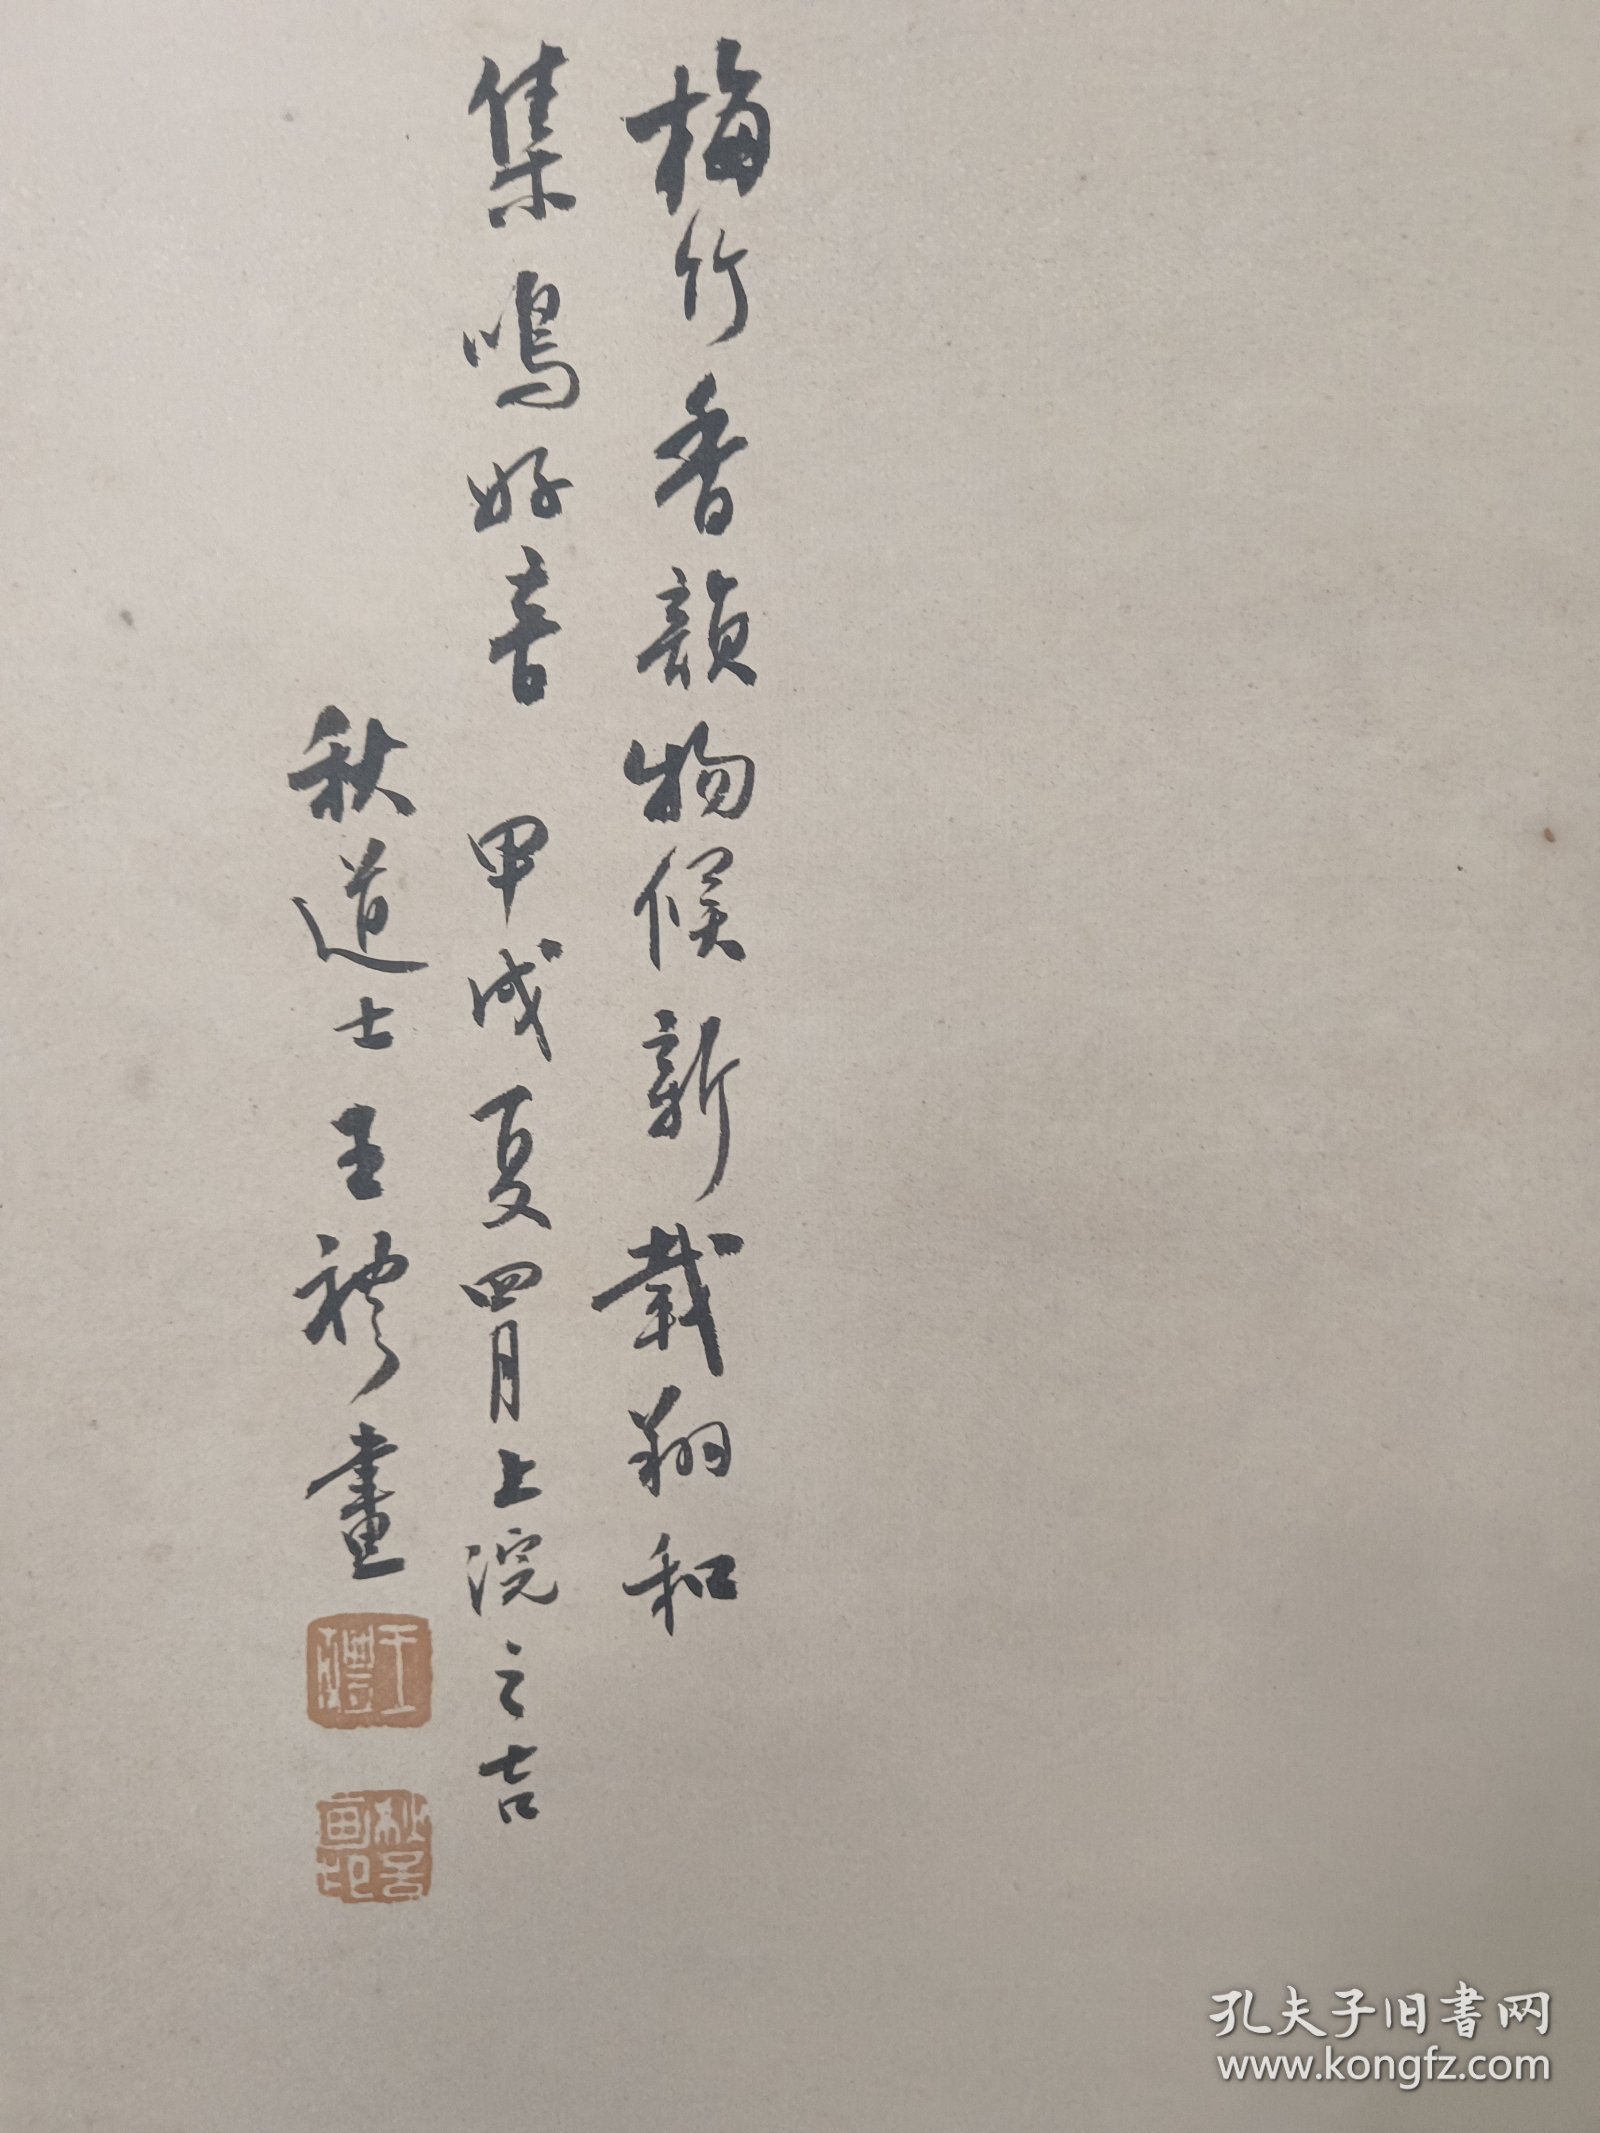 梅竹香韻物候新載翔和
集鳴好音 甲戌夏四月上浣之吉
秋道士王禮畫
王禮
秋言画印
孔夫子旧书网
www.kongfz.com